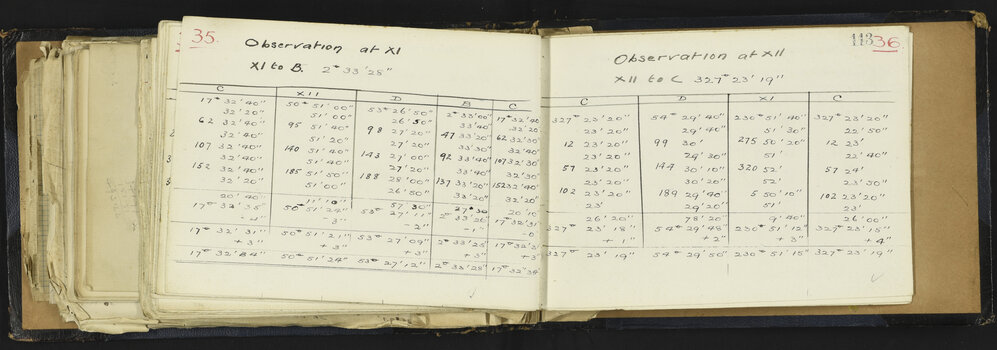 35.
Observation at XI
XI to B. 2° 33' 28"
C XII D B C
17° 32' 40" 50° 51' 00" 53° 26' 50" 2° 33' 00" 17° 32' 40"
32' 20" 51' 00" 26' 50" 33' 40" 32' 20"
62 32' 40" 95 51' 40" 98 27' 20" 47 33' 20" 62 32' 30"
32' 40" 51' 20" 27' 20" 33' 30" 32' 40"
107 32' 40" 140 51' 40" 143 27' 00" 92 33' 40" 107 32' 30"
32' 40" 51' 40" 27' 20" 33' 40" 32' 20"
152 32' 40" 185 51' 50" 188 28' 00" 137 33' 20" 152 32' 40"
32' 20" 51' 00" 26' 50" 33' 20" 32' 20"
20' 40" 11' 10" 57' 30" 27' 30 20' 10"
17° 32' 35" 50° 51' 24" 53° 27' 11" 2° 33' 26" 17° 32' 31"
-4" -3" -2" -1" -0"
17° 32' 31" 50° 51' 21" 53° 27' 09" 2° 33' 25" 17° 32' 3
+3" +3" +3" +3"
17° 32' 34" 50° 51' 24" 53° 27' 12" 2° 33' 28" 17° 32' 34
443 36
Observation at XII
XII to C 327° 23' 19"
C D XI C
327° 23' 20" 54° 29' 40" 230° 51' 40" 327° 23' 20"
23' 20" 29' 40" 51' 30" 22' 50"
12 23' 20" 99 30' 275 50' 20" 12 23'
23' 20" 29' 30" 51' 22' 40"
57 23' 20" 144 30' 10" 320 52' 57 24'
23' 20" 30' 10" 52' 23' 30"
102 23' 20" 189 29' 40" 5 50' 10" 102 23' 20"
23' 29' 20" 51' 23'
26' 20" 78' 20" 9' 40" 26' 00"
327° 23' 18" 54° 29' 48" 230° 51' 12" 327° 23' 15"
+1" +2" +3" +4"
327° 23' 19" 54° 29' 50" 230° 51' 15" 327° 23' 19"